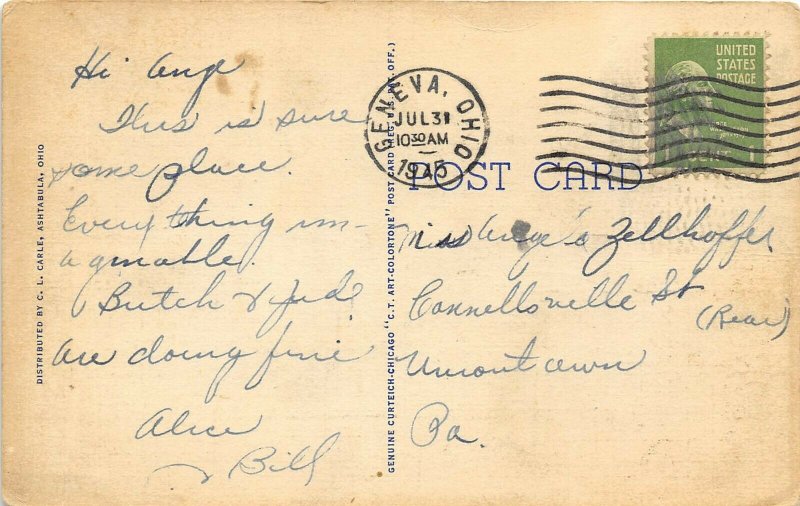 Hi Ange
This is sure
some place.
Everything im-
aginable.
Butch & Jude
are doing fine
Alice
& Bill
DISTRIBUTED BY C. L. CARLE, ASHTABULA, OHIO
GENUINE CURTEICH-CHICAGO "C.T. ART-COLORTONE" POST CARD (REG. U.S. PAT. OFF.)
GENEVA, OHIO
JUL 31
10 30 AM
1945
UNITED
STATES
POSTAGE
1
POST CARD
Miss Zellhoffer
Connellsville St
(Rear)
Uniontown
Pa.